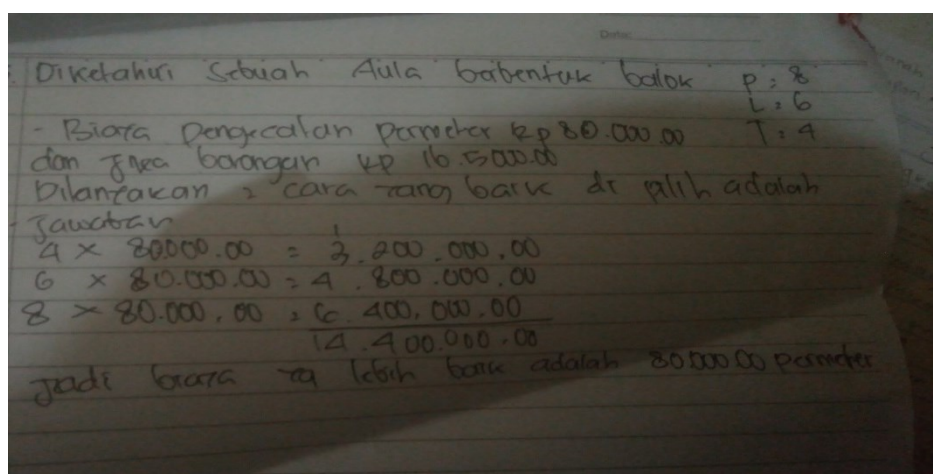 Date:
Diketahui Sebuah Aula babentuk balok P : 8
L : 6
- Biaya Pengecatan Permeter Rp 80.000.00 T : 4
dan jika borongan Rp 16.500.00
Ditanyakan : cara yang baik di pilih adalah
- Jawaban
4 × 80.000.00 = 3.200.000,00
6 × 80.000.00 = 4.800.000.00
8 × 80.000,00 = 6.400,000.00
14.400.000.00
Jadi biaya yg lebih baik adalah 80.000 00 Permeter